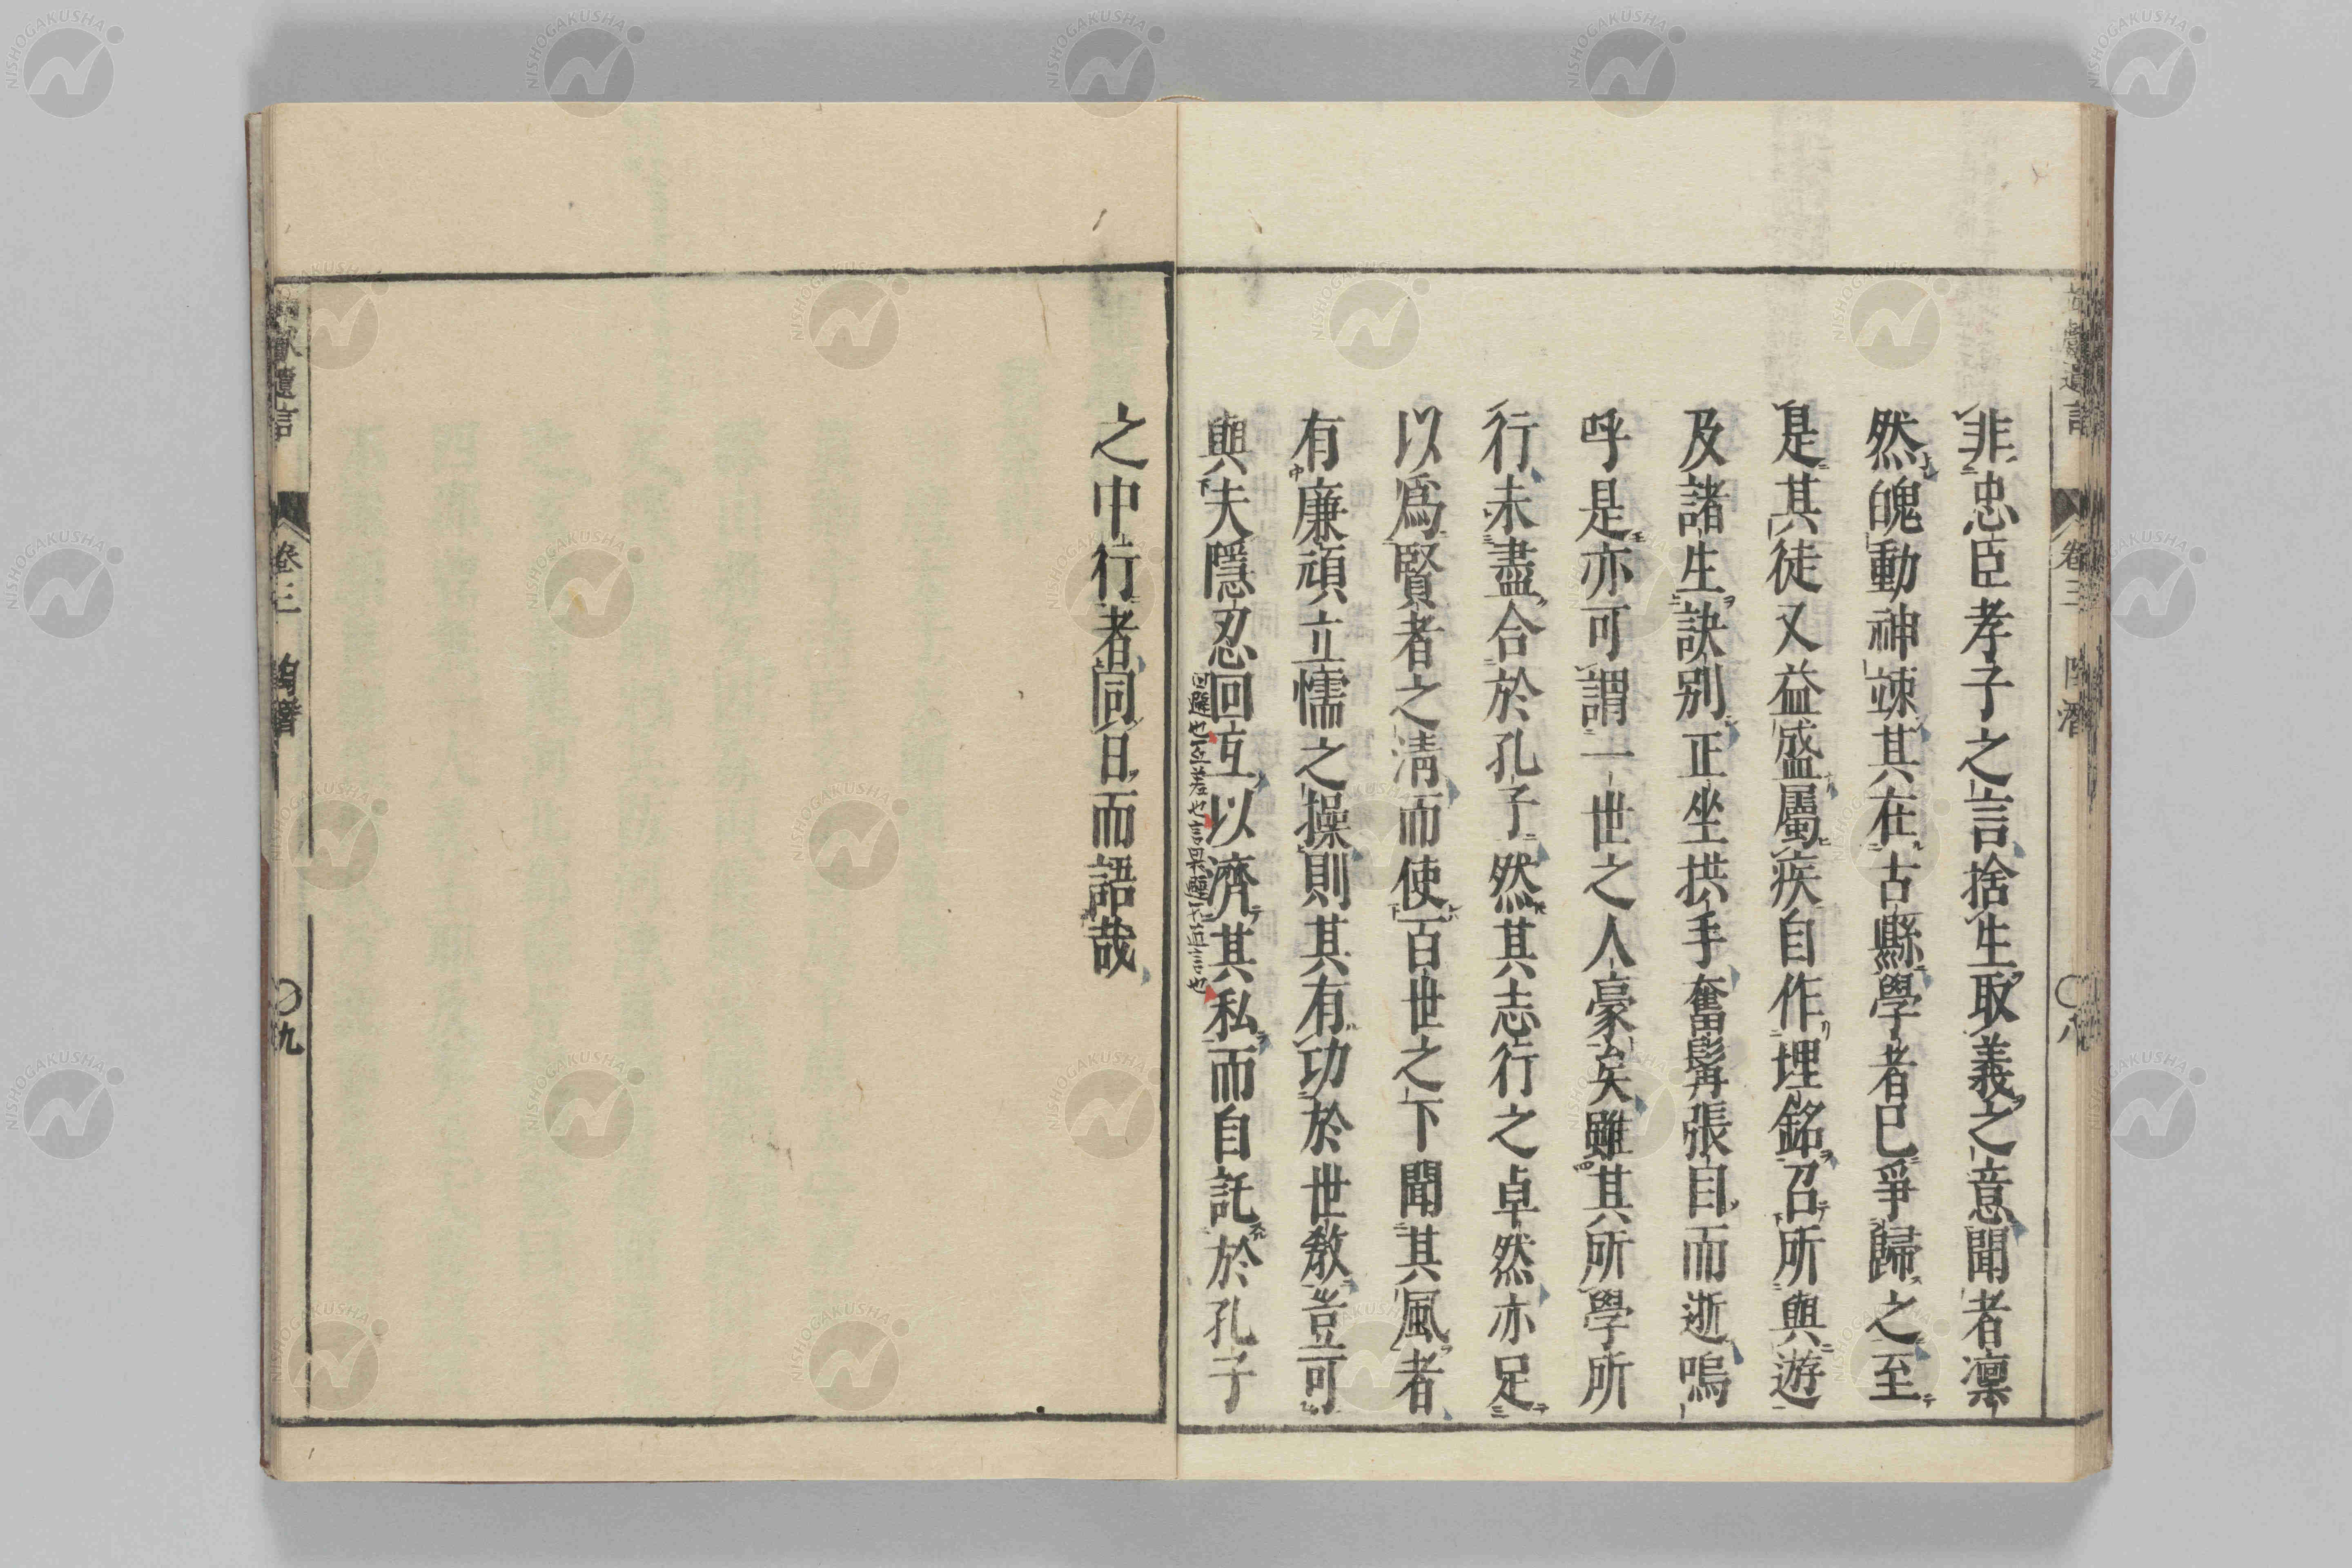 非忠臣孝子之言捨生取義之意聞者凜
然魄動神竦其在古縣學者已爭歸之至
是其徒又益盛屬疾自作埋銘召所與遊
及諸生訣別正坐拱手奮髯張目而逝嗚
呼是亦可謂一世之人豪矣雖其所學所
行未盡合於孔子然其志行之卓然亦足
以爲賢者之淸而使百世之下聞其風者
有廉頑立懦之操則其有功於世敎豈可
與夫隱忍回互以濟其私而自託於孔子
回避也互差也言畏避不直言也
之中行者同日而語哉
遺言 卷三 陶潛 九
遺言 卷三 陶潛 八
NISHOGAKUSHA